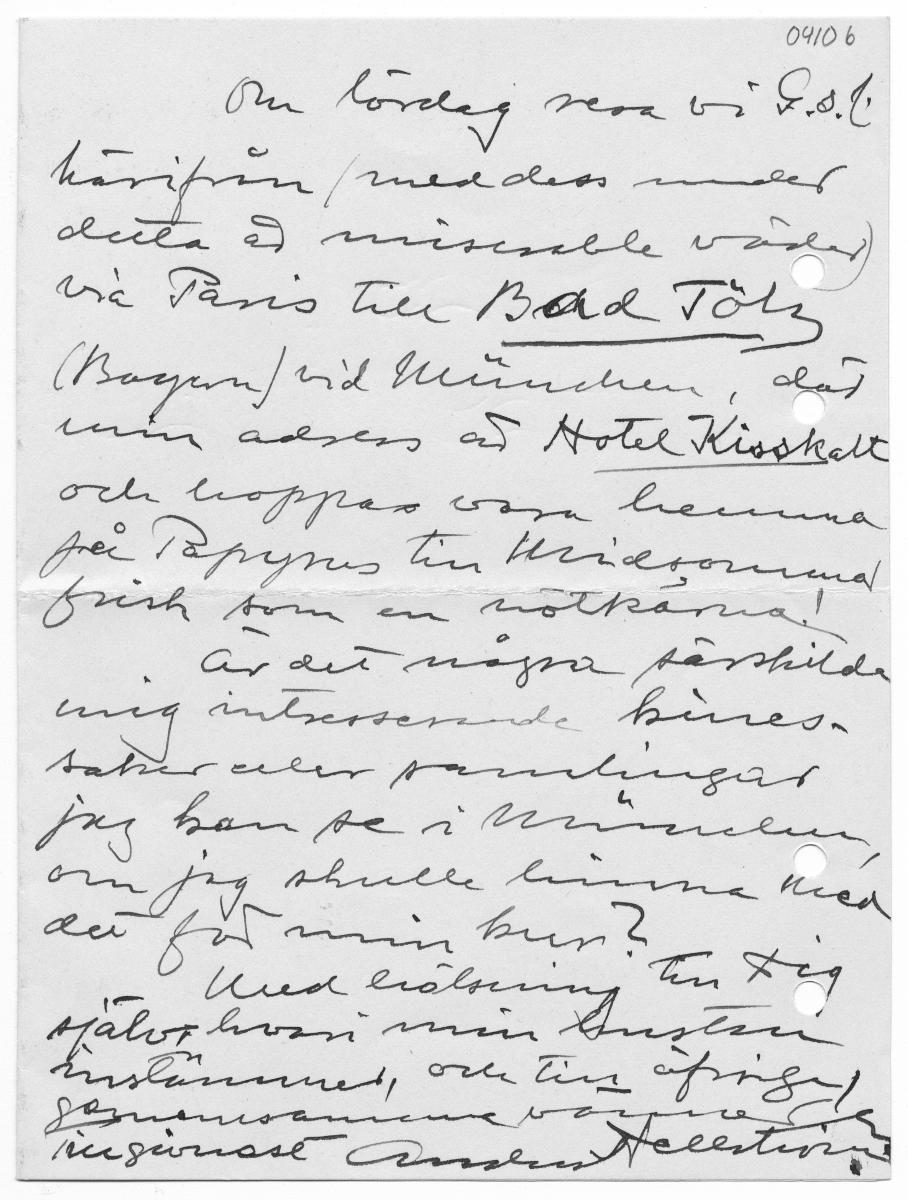 04106
Om lördag resa vi G.s.l.
härifrån (med dess under
detta år miserable väder)
via Paris till Bad Tölz
(Bayern) vid München, där
min adress är Hotel Kisskalt
och hoppas vara hemma
på Papyrus till Midsommar
frisk som en nötkärna!
Är det några särskilda
mig intresserande kines-
saker eller samlingar
jag kan se i München,
om jag skulle hinna med
det för min kur?
Med hälsning till Dig
själv, hvari min hustru
instämmer, och till öfriga,
gemensamma vänner,
Anders Hellström